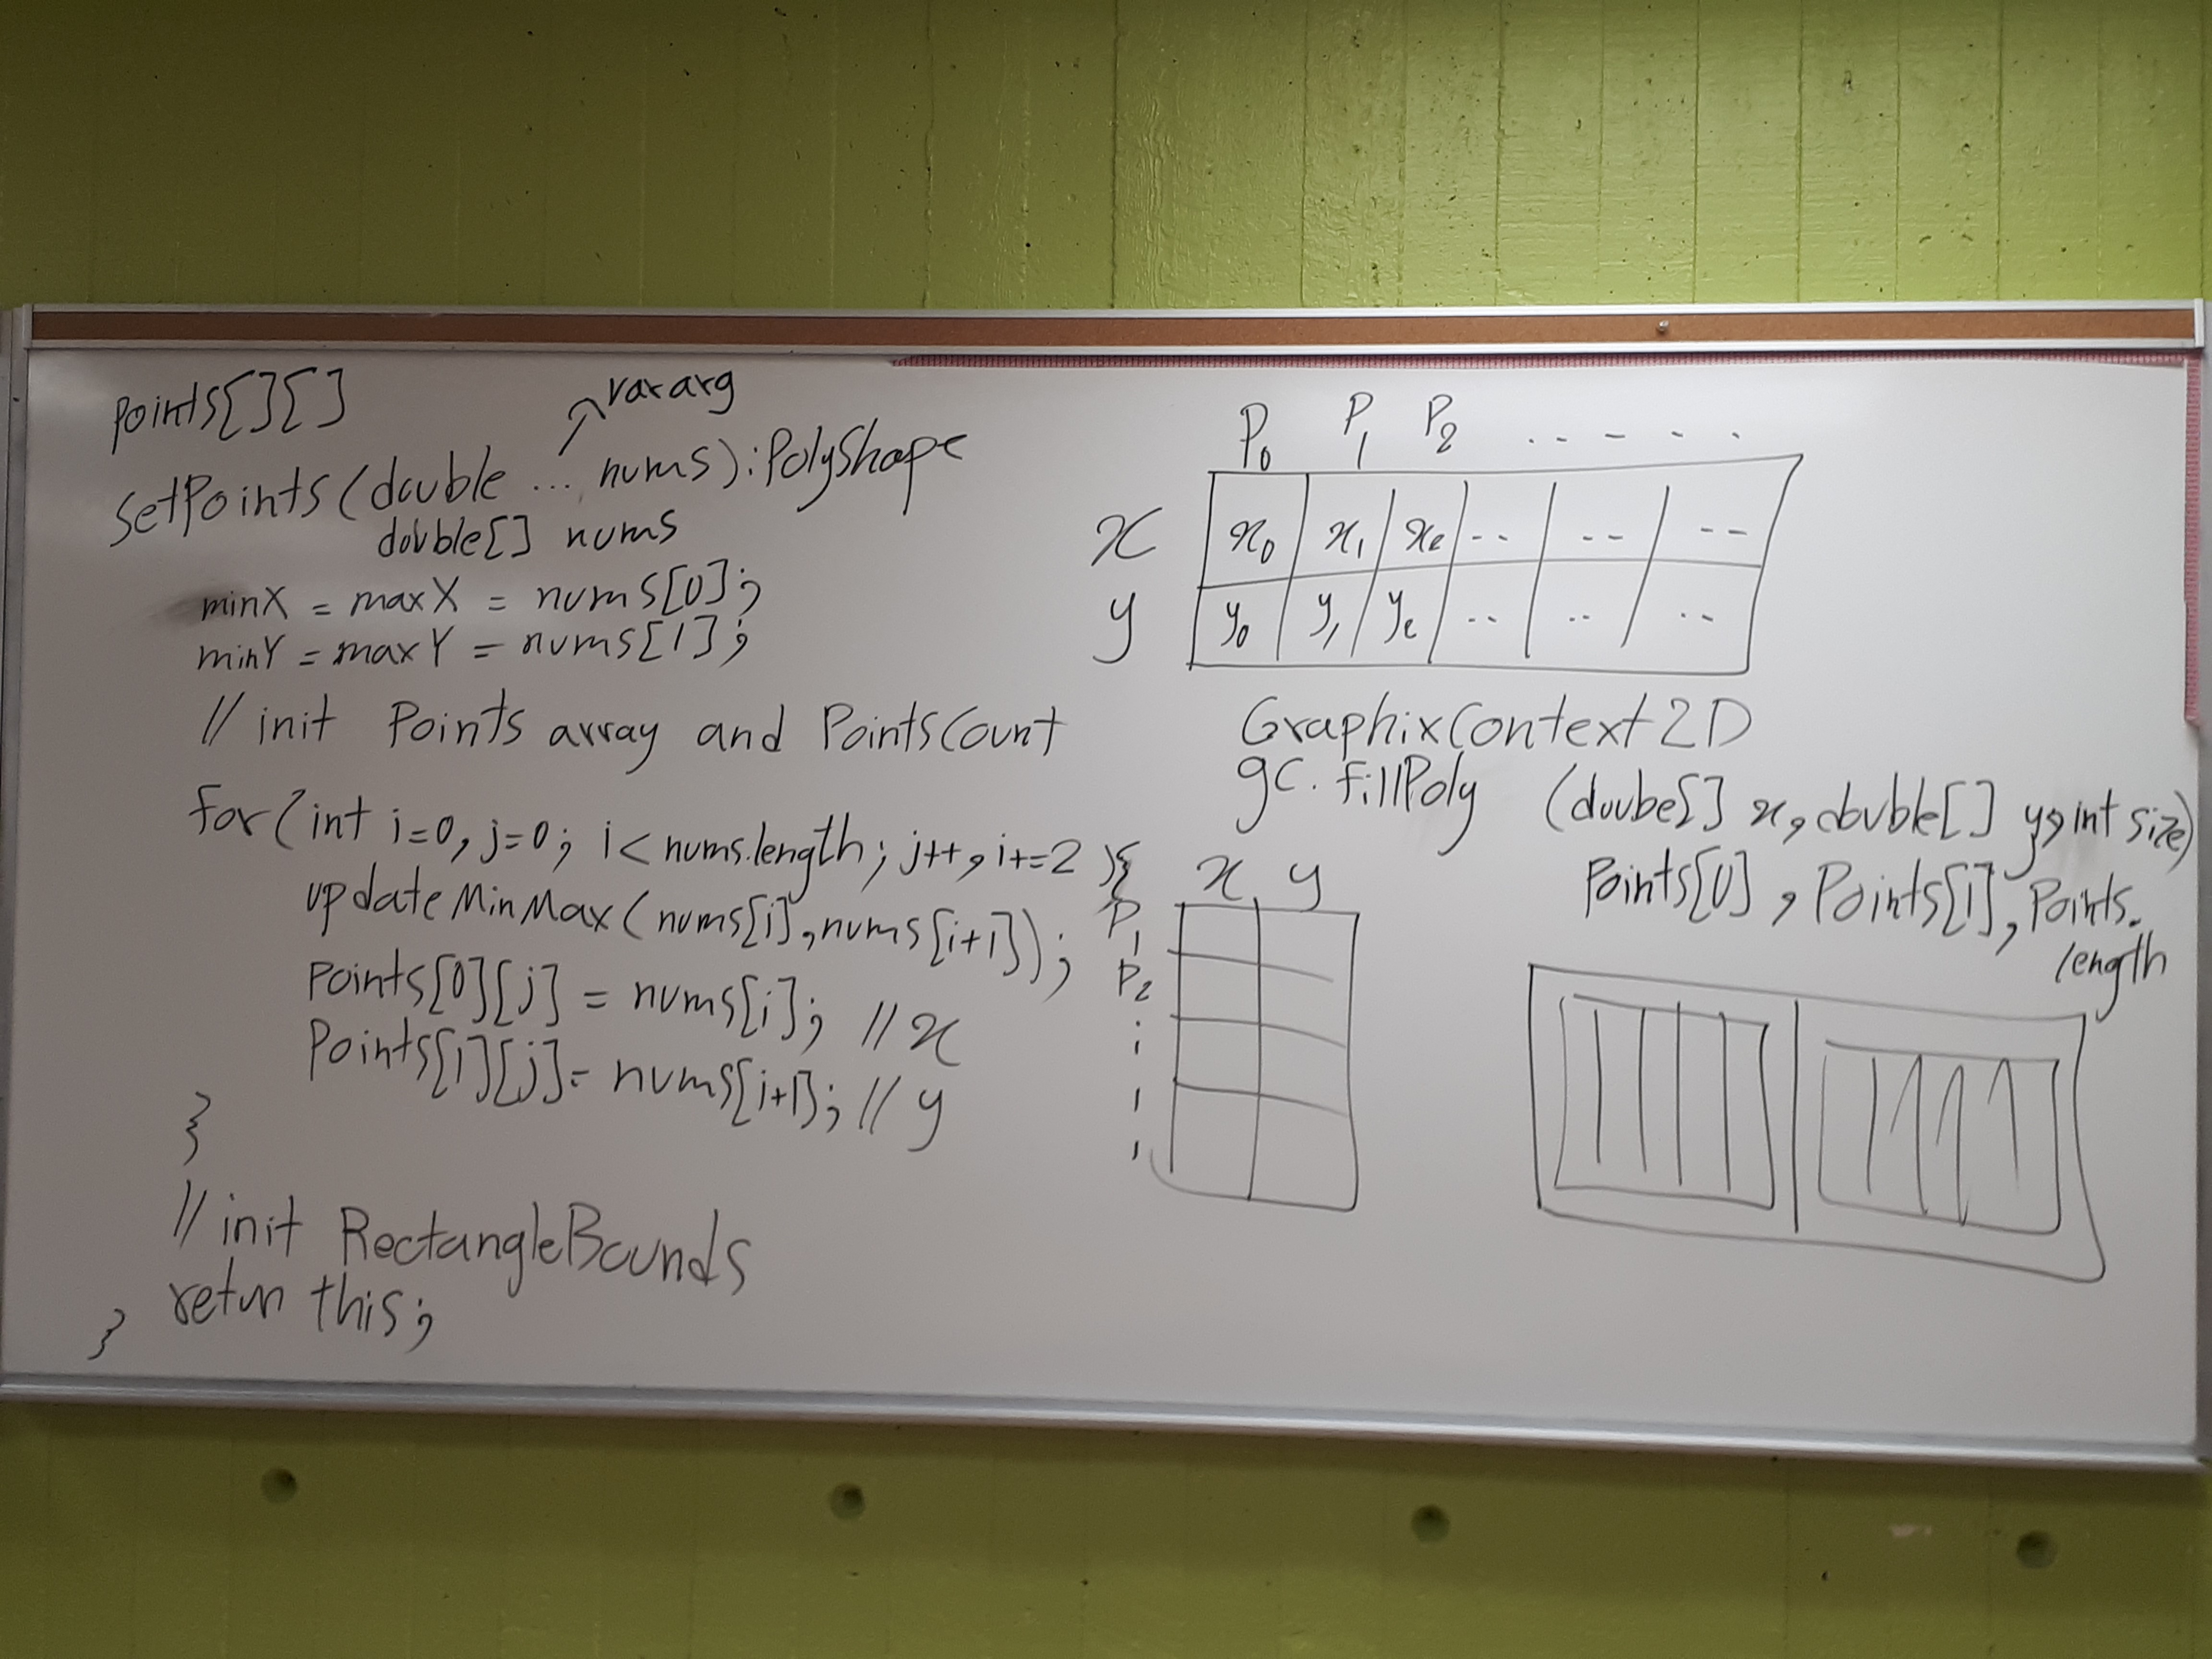 points[][]
vararg
setPoints(double ... nums):PolyShape
double[] nums
minX = maxX = nums[0];
minY = maxY = nums[1];
// init Points array and PointsCount
for(int i=0, j=0; i< nums.length; j++, i+=2 ){
updateMinMax(nums[i],nums[i+1]);
Points[0][j] = nums[i]; // x
Points[1][j]= nums[i+1]; // y
}
// init RectangleBounds
return this;
}
P0 P1 P2 .. - - - .
x x0 x1 x2 -- -- --
y y0 y1 y2 .. .. ..
GraphixContext2D
gc.fillPoly (doube[] x, double[] y, int size)
Points[0], Points[1], Points.
length
x y
P1
P2